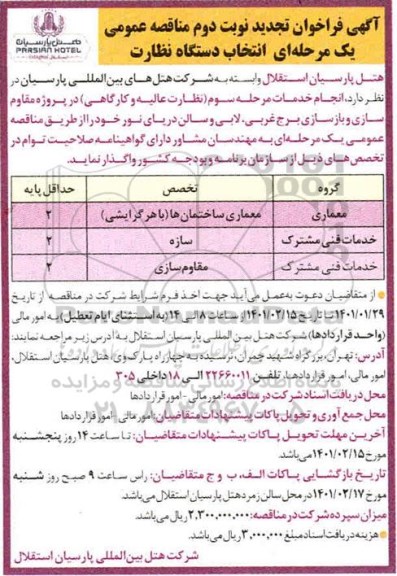 آگهی فراخوان تجدید نوبت دوم مناقصه عمومی
یک مرحله‌ای انتخاب دستگاه نظارت
هتل پارسیان
PARSIAN HOTEL
هتل پارسیان استقلال وابسته به شرکت هتل‌های بین‌المللی پارسیان در
نظر دارد، انجام خدمات مرحله سوم (نظارت عالیه و کارگاهی) در پروژه مقاوم
سازی و بازسازی برج غربی، لابی و سالن دریای نور خود را از طریق مناقصه
عمومی یک مرحله‌ای به مهندسان مشاور دارای گواهینامه صلاحیت توام در
تخصص‌های ذیل از سازمان برنامه و بودجه کشور واگذار نماید.
گروه تخصص حداقل پایه
معماری معماری ساختمان‌ها (با هر گرایشی) ۲
خدمات فنی مشترک سازه ۲
خدمات فنی مشترک مقاوم‌سازی ۲
از متقاضیان دعوت به‌عمل می‌آید جهت اخذ فرم شرایط شرکت در مناقصه از تاریخ
۱۴۰۱/۰۱/۲۹ تا تاریخ ۱۴۰۱/۰۲/۱۵ از ساعت ۸ الی ۱۴ (به استثنای ایام تعطیل) به امور مالی
(واحد قراردادها) شرکت هتل بین المللی پارسیان استقلال به آدرس زیر مراجعه نمایند:
آدرس: تهران، بزرگراه شهید چمران، نرسیده به چهارراه پارک وی، هتل پارسیان استقلال،
امور مالی، امور قراردادها، تلفن: ۲۲۶۶۰۰۱۱ الی ۱۸ داخلی ۳۰۵
محل دریافت اسناد شرکت در مناقصه: امور مالی - امور قراردادها
محل جمع‌آوری و تحویل پاکات پیشنهادات متقاضیان: امور مالی - امور قراردادها
آخرین مهلت تحویل پاکات پیشنهادات متقاضیان: تا ساعت ۱۴ روز پنجشنبه
مورخ ۱۴۰۱/۰۲/۱۵ می‌باشد.
تاریخ بازگشایی پاکات الف، ب و ج متقاضیان: راس ساعت ۹ صبح روز شنبه
مورخ ۱۴۰۱/۰۲/۱۷ در محل سالن زمرد هتل پارسیان استقلال می‌باشد.
میزان سپرده شرکت در مناقصه: ۲,۳۰۰,۰۰۰,۰۰۰ ریال می‌باشد.
هزینه دریافت اسناد مبلغ ۳,۰۰۰,۰۰۰ ریال می‌باشد.
شرکت هتل بین‌المللی پارسیان استقلال